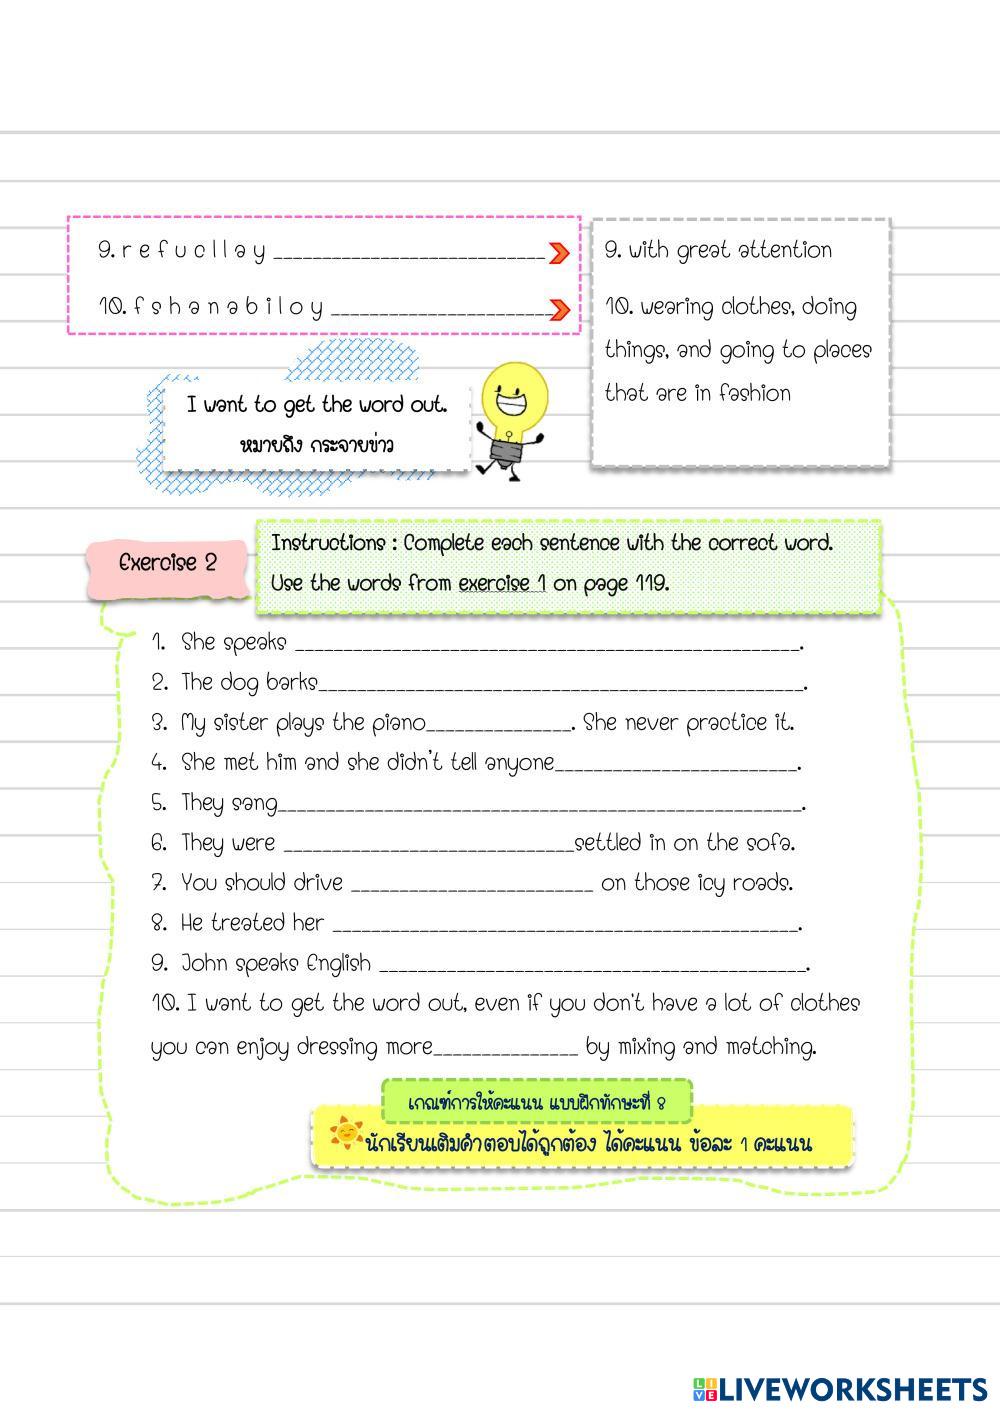 9. r e f u c l l a y ____________________________
10. f s h a n a b i l o y _______________________
9. with great attention
10. wearing clothes, doing
things, and going to places
that are in fashion
I want to get the word out.
หมายถึง กระจายข่าว
Exercise 2
Instructions : Complete each sentence with the correct word.
Use the words from exercise 1 on page 119.
1. She speaks ____________________________________________________.
2. The dog barks__________________________________________________.
3. My sister plays the piano_______________. She never practice it.
4. She met him and she didn't tell anyone_________________________.
5. They sang______________________________________________________.
6. They were ______________________________settled in on the sofa.
7. You should drive _________________________ on those icy roads.
8. He treated her ________________________________________________.
9. John speaks English ____________________________________________.
10. I want to get the word out, even if you don't have a lot of clothes
you can enjoy dressing more_______________ by mixing and matching.
เกณฑ์การให้คะแนน แบบฝึกทักษะที่ 8
นักเรียนเติมคำตอบได้ถูกต้อง ได้คะแนน ข้อละ 1 คะแนน
LIVE LIVEWORKSHEETS